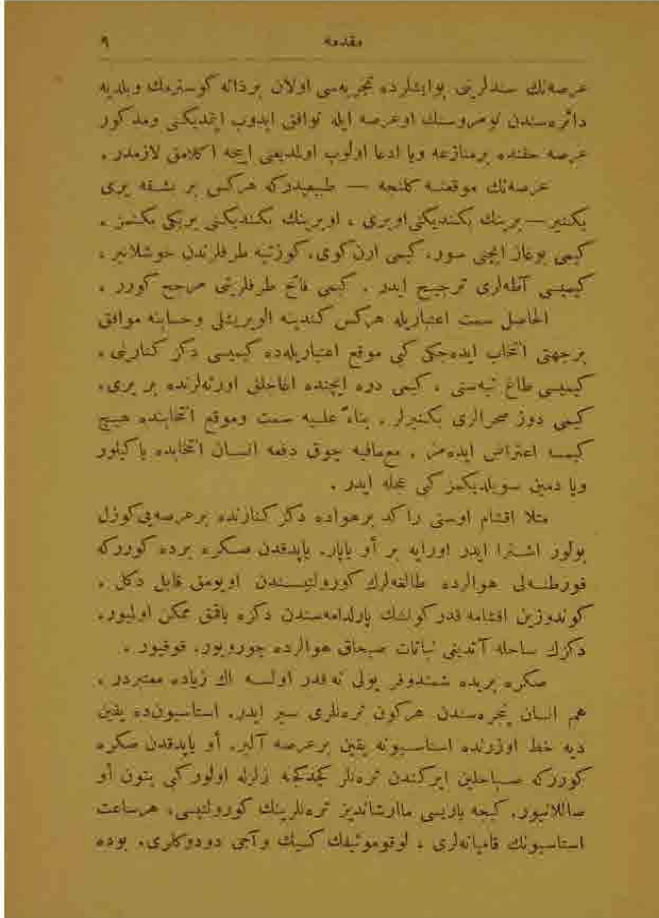 مقدمه ٩
عرصه‌نك سندلرينى بوايشلرده تجربه‌سى اولان برذاته كوسترمك وبلديه
دائره‌سندن نومروسنك اوعرصه ايله توافق ايدوب ايتمديكنى ومذكور
عرصه حقنده برمنازعه ويا ادعا اولوب اولمديغنى ايجه اكلامق لازمدر.
عرصه‌نك موقعنه كلنجه — طبيعيدركه هركس بر بشقه يرى
بكنير — برينك بكنديكنى اوبرى ، اوبرينك بكنديكنى بريكى بكنمز .
كيمى بوغاز ايچنى سور، كيمى ارن كوى، كوزتپه طرفلرندن خوشلانير ،
كيميسى آطه‌لرى ترجيح ايدر . كيمى فاتح طرفلرينى مرجح كورر .
الحاصل سمت اعتباريله هركس كندينه الويريشلى وحسابنه موافق
برجهتى انتخاب ايده‌جكى كبى موقع اعتباريله‌ده كيميسى دكز كنارنى ،
كيميسى طاغ تپه‌سنى ، كيمى دره ايچنده اغاجلق اورته‌لرنده بر يرى،
كيمى دوز صحرالرى بكنيرلر . بناءً عليه سمت وموقع انتخابنده هيچ
كيمسه اعتراض ايده‌مز . مع‌مافيه چوق دفعه انسان انتخابده ياكيلور
ويا دمين سويلديكمز كبى عجله ايدر .
مثلا اقشام اوستى راكد برهواده دكز كنارنده برعرصه‌يى كوزل
بولور اشترا ايدر اورايه بر أو ياپار. ياپدقدن صكره برده كوررکه
فورطنه‌لى هوالرده طالغه‌لرك كورولتيسندن اويومق قابل دكل ،
كوندوزين اقشامه قدر كونشك پارلدامه‌سندن دكزه باقمق ممكن اوليور.
دكزك ساحله آتديغى نباتات صيجاق هوالرده چوروبور، قوقيور .
صكره بريده شمندوفر يولى نه‌قدر اولسه اك زياده معتبردر .
هم انسان پنجره‌سندن هركون ترنلرى سير ايدر. استاسيون‌ده يقين
ديه خط اوزرنده استاسيونه يقين برعرصه آلير. أو ياپدقدن صكره
كوررکه صباحلين ايركندن ترنلر كچدكجه زلزله اولوركبى بتون أو
صاللانيور. كيجه ياريسى ماارشانديز ترنلرينك كورولتيسى، هرساعت
استاسيونك قامپانه‌لرى ، لوقوموتيفك كسيك وآجى دودوكلرى. بوده